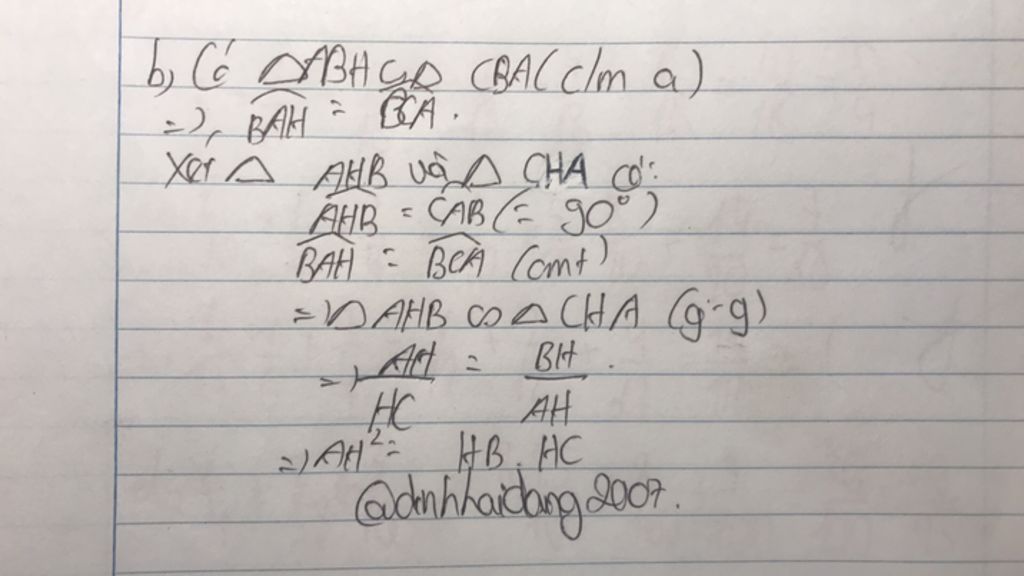 b, Có △ABH ∽ △ CBA (c/m a)
=>, BAH = BCA.
Xét △ AHB và △ CHA có:
AHB = CAB (= 90°)
BAH = BCA (cmt)
=> △ AHB ∽ △ CHA (g-g)
=> AH/HC = BH/AH.
=> AH² = HB. HC
@dinhhaidang2007.